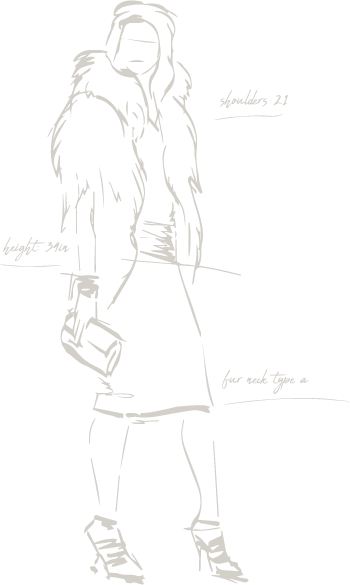 shoulders 21
height 34in
fur neck type a